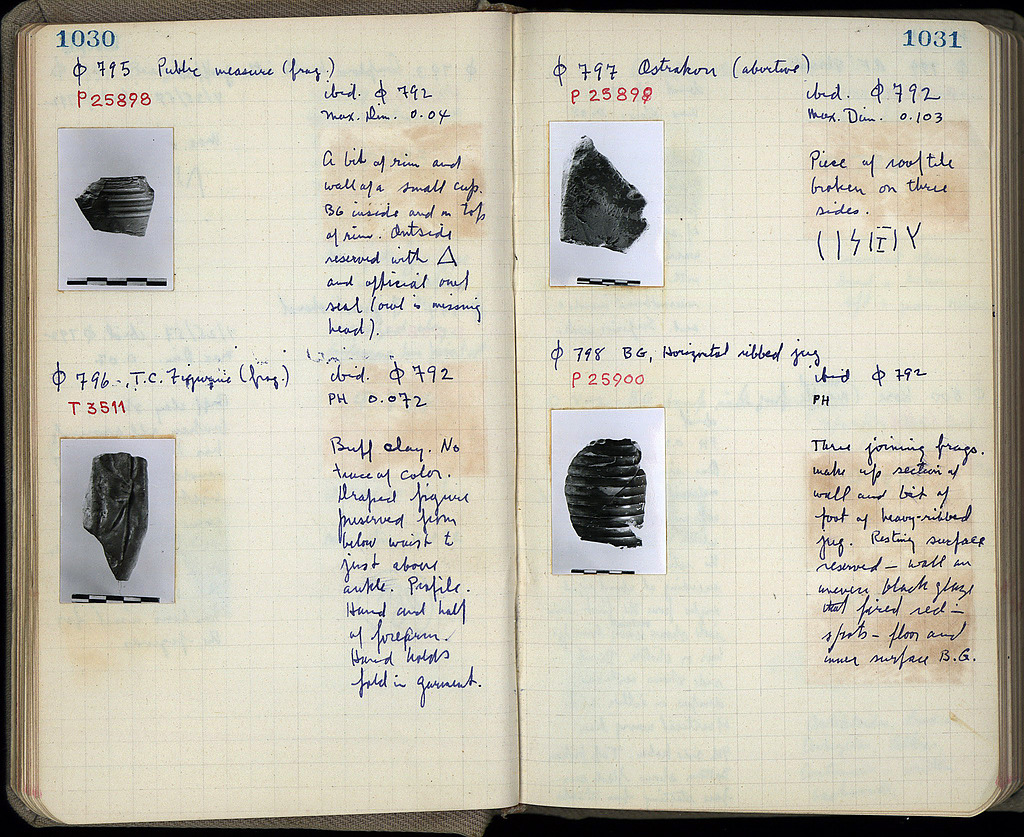 1030
Φ 795 Public measure (frag.)
P 25898
ibid. Φ 792
max. Dim. 0.04
A bit of rim and
wall of a small cup.
BG inside and on top
of rim. Outside
reserved with Δ
and official owl
seal (owl is missing
head).
Φ 796 T.C. Figurine (frag.)
T 3511
ibid. Φ 792
PH 0.072
Buff clay. No
trace of color.
Draped figure
preserved from
below waist to
just above
ankle. Profile.
Hand and half
of forearm.
Hand holds
fold in garment.
1031
Φ 797 Ostrakon (abortive)
P 25899
ibid. Φ 792
Max. Dim. 0.103
Piece of rooftile
broken on three
sides.
Φ 798 BG, Horizontal ribbed jug
P 25900
ibid Φ 792
PH
Three joining frags.
make up section of
wall and bit of
foot of heavy-ribbed
jug. Resting surface
reserved – wall an
uneven black glaze
that fired red –
spots – floor and
inner surface B.G.